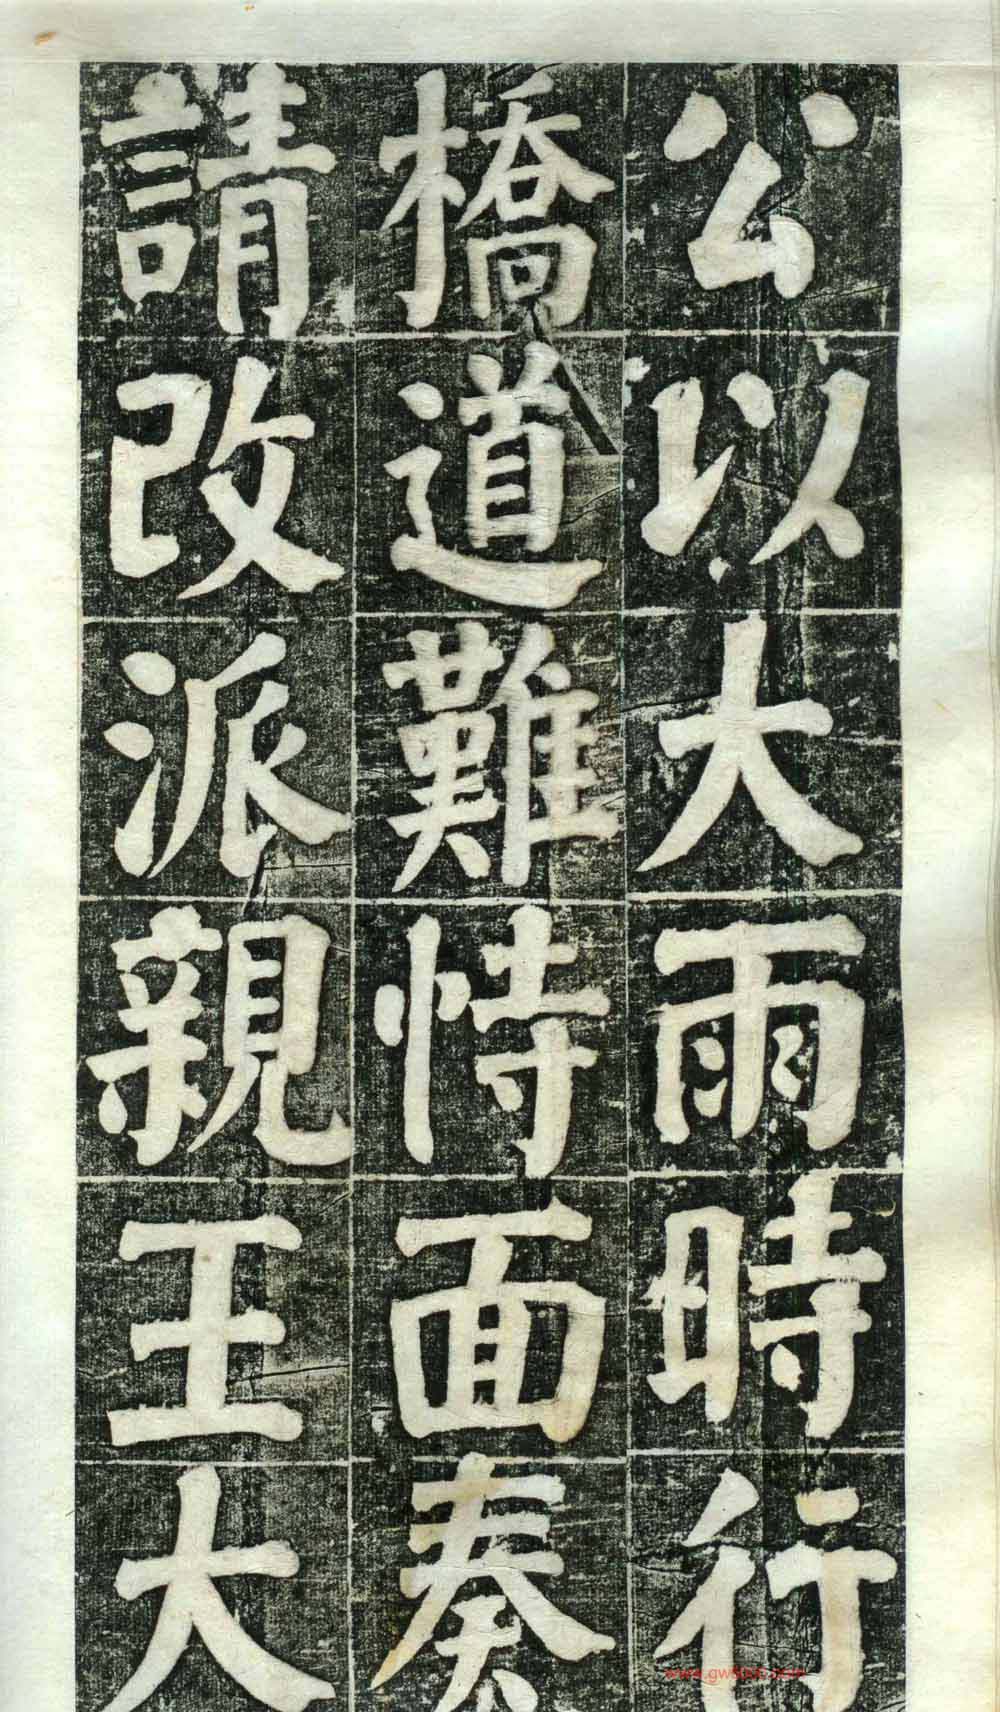 公以大雨時行
橋道難恃面奏
請改派親王大
www.gw5000.com